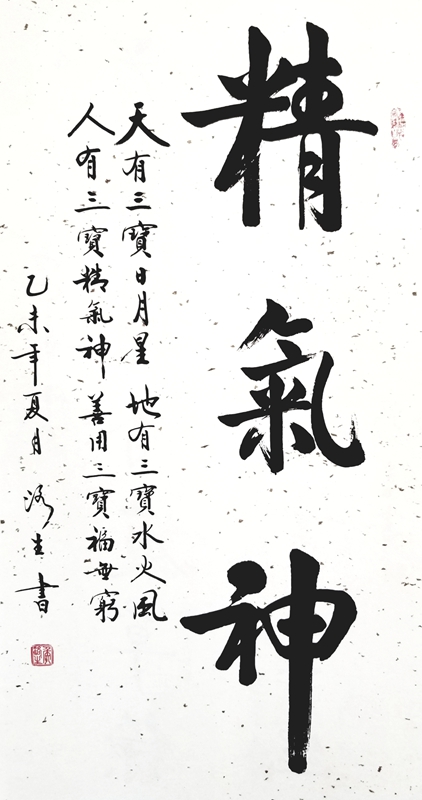 精氣神
天有三寶日月星 地有三寶水火風
人有三寶精氣神 善用三寶福無窮
乙未年夏月 洛生書